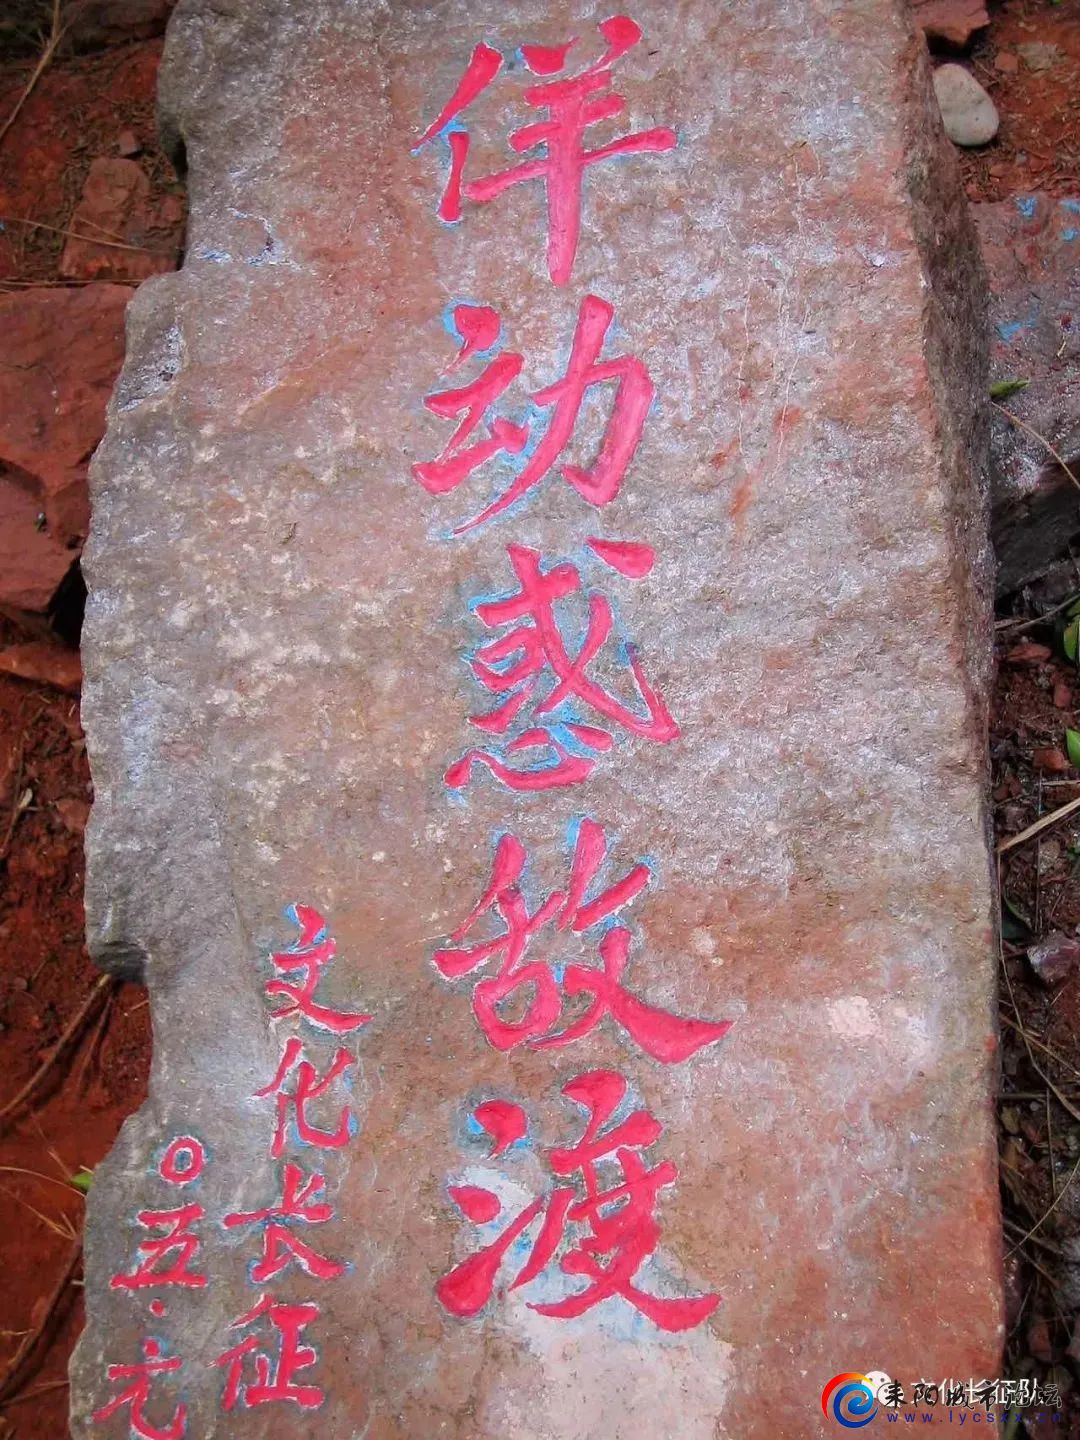 佯动惑敌渡
文化长征
〇五·元
文化长征队
耒阳城市论坛
www.lycsxx.cn